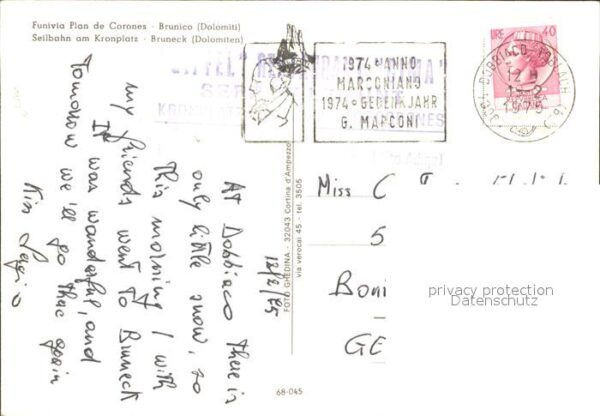 Funivia Plan de Corones - Brunico (Dolomiti)
Seilbahn am Kronplatz - Bruneck (Dolomiten)
LIRE 40
DOBBIACO - TOBLACH
12
13-2
1975
1974 ANNO
MARCONIANO
1974 GEDENKJAHR
G. MARCONI
KRONPLATZ
12/2/75
At Dobbiaco there is
only little snow, so
this morning I with
my friends went to Bruneck
It was wonderful, and
Tomorrow we'll go there again
FOTO GHEDINA - 32043 Cortina d'Ampezzo
via verocai 45 - tel. 3505
68-045
Miss C
5
Boni
GE
privacy protection
Datenschutz